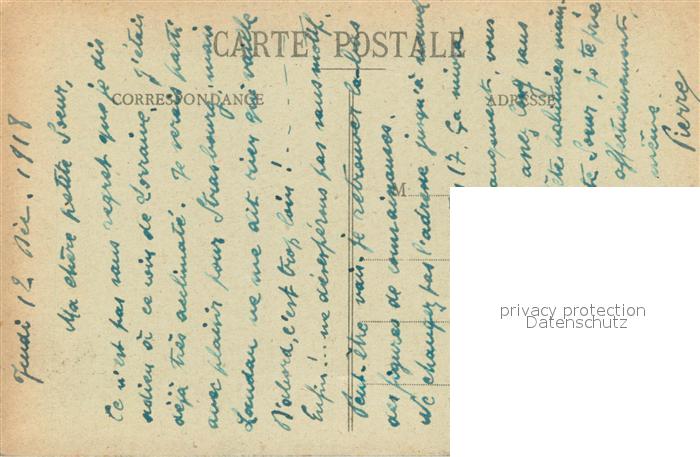 CARTE POSTALE
CORRESPONDANCE
ADRESSE
M
Jeudi 12 Déc. 1918
Ma chère petite Soeur,
Ce n'est pas sans regret que je dis
adieu à ce coin de Lorraine. J'étais
déjà très acclimaté. Je serais parti
avec plaisir pour Strasbourg mais
Landau ne me dit rien qui vaille
D'abord, c'est trop loin! - - - -
Enfin!.. ne désespérons pas sans motif.
Peut-être vais-je retrouver là-bas
des figures de connaissances.
Ne changez pas l'adresse jusqu'à
17. Ça
vous
assez long sans
être
Soeur, je te prie
affectueusement.
Pierre
privacy protection
Datenschutz